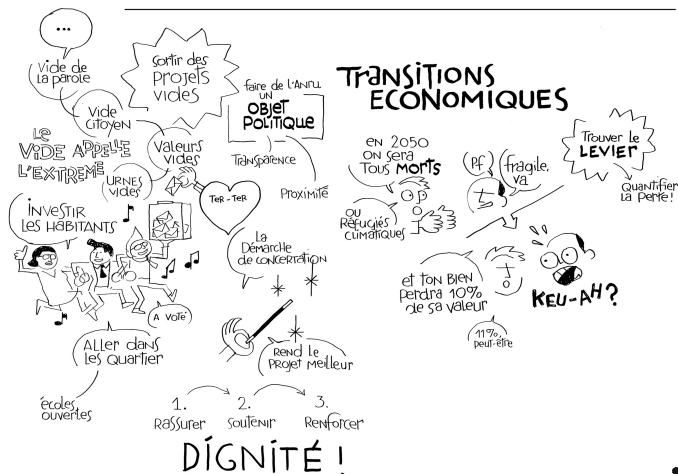 ...
Vide de
la parole
Vide
citoyen
Valeurs
vides
Urnes
vides
Le
vide appelle
l'extrême
sortir des
projets
vides
faire de l'Anru
un
objet
politique
Transparence
Proximité
Ter-Ter
investir
les habitants
A voté
Aller dans
les quartier
écoles
ouvertes
La
Démarche
de concertation
Rend le
projet meilleur
1.
Rassurer
2.
Soutenir
3.
Renforcer
DIGNITÉ !
Transitions
Economiques
en 2050
on sera
tous morts
ou
réfugiés
climatiques
Pf
fragile,
va
Trouver le
levier
Quantifier
la perte!
et ton bien
perdra 10%
de sa valeur
11%,
peut-être
KEU-AH?